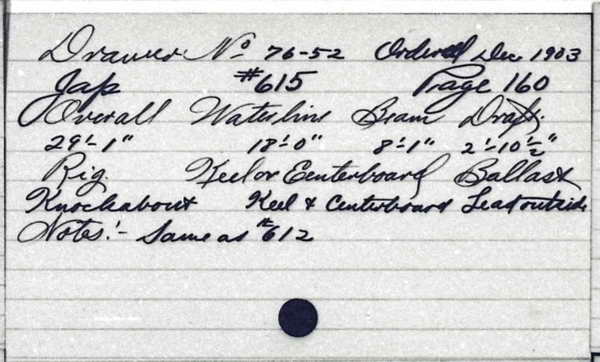 Drawer No 76-52 Ordered Dec 1903
Jap #615 Page 160
Overall Waterline Beam Draft.
29'-1" 18'-0" 8'-1" 2'-10½"
Rig Keel or Centerboard Ballast
Knockabout Keel & Centerboard Lead outside
Notes:- Same as #612